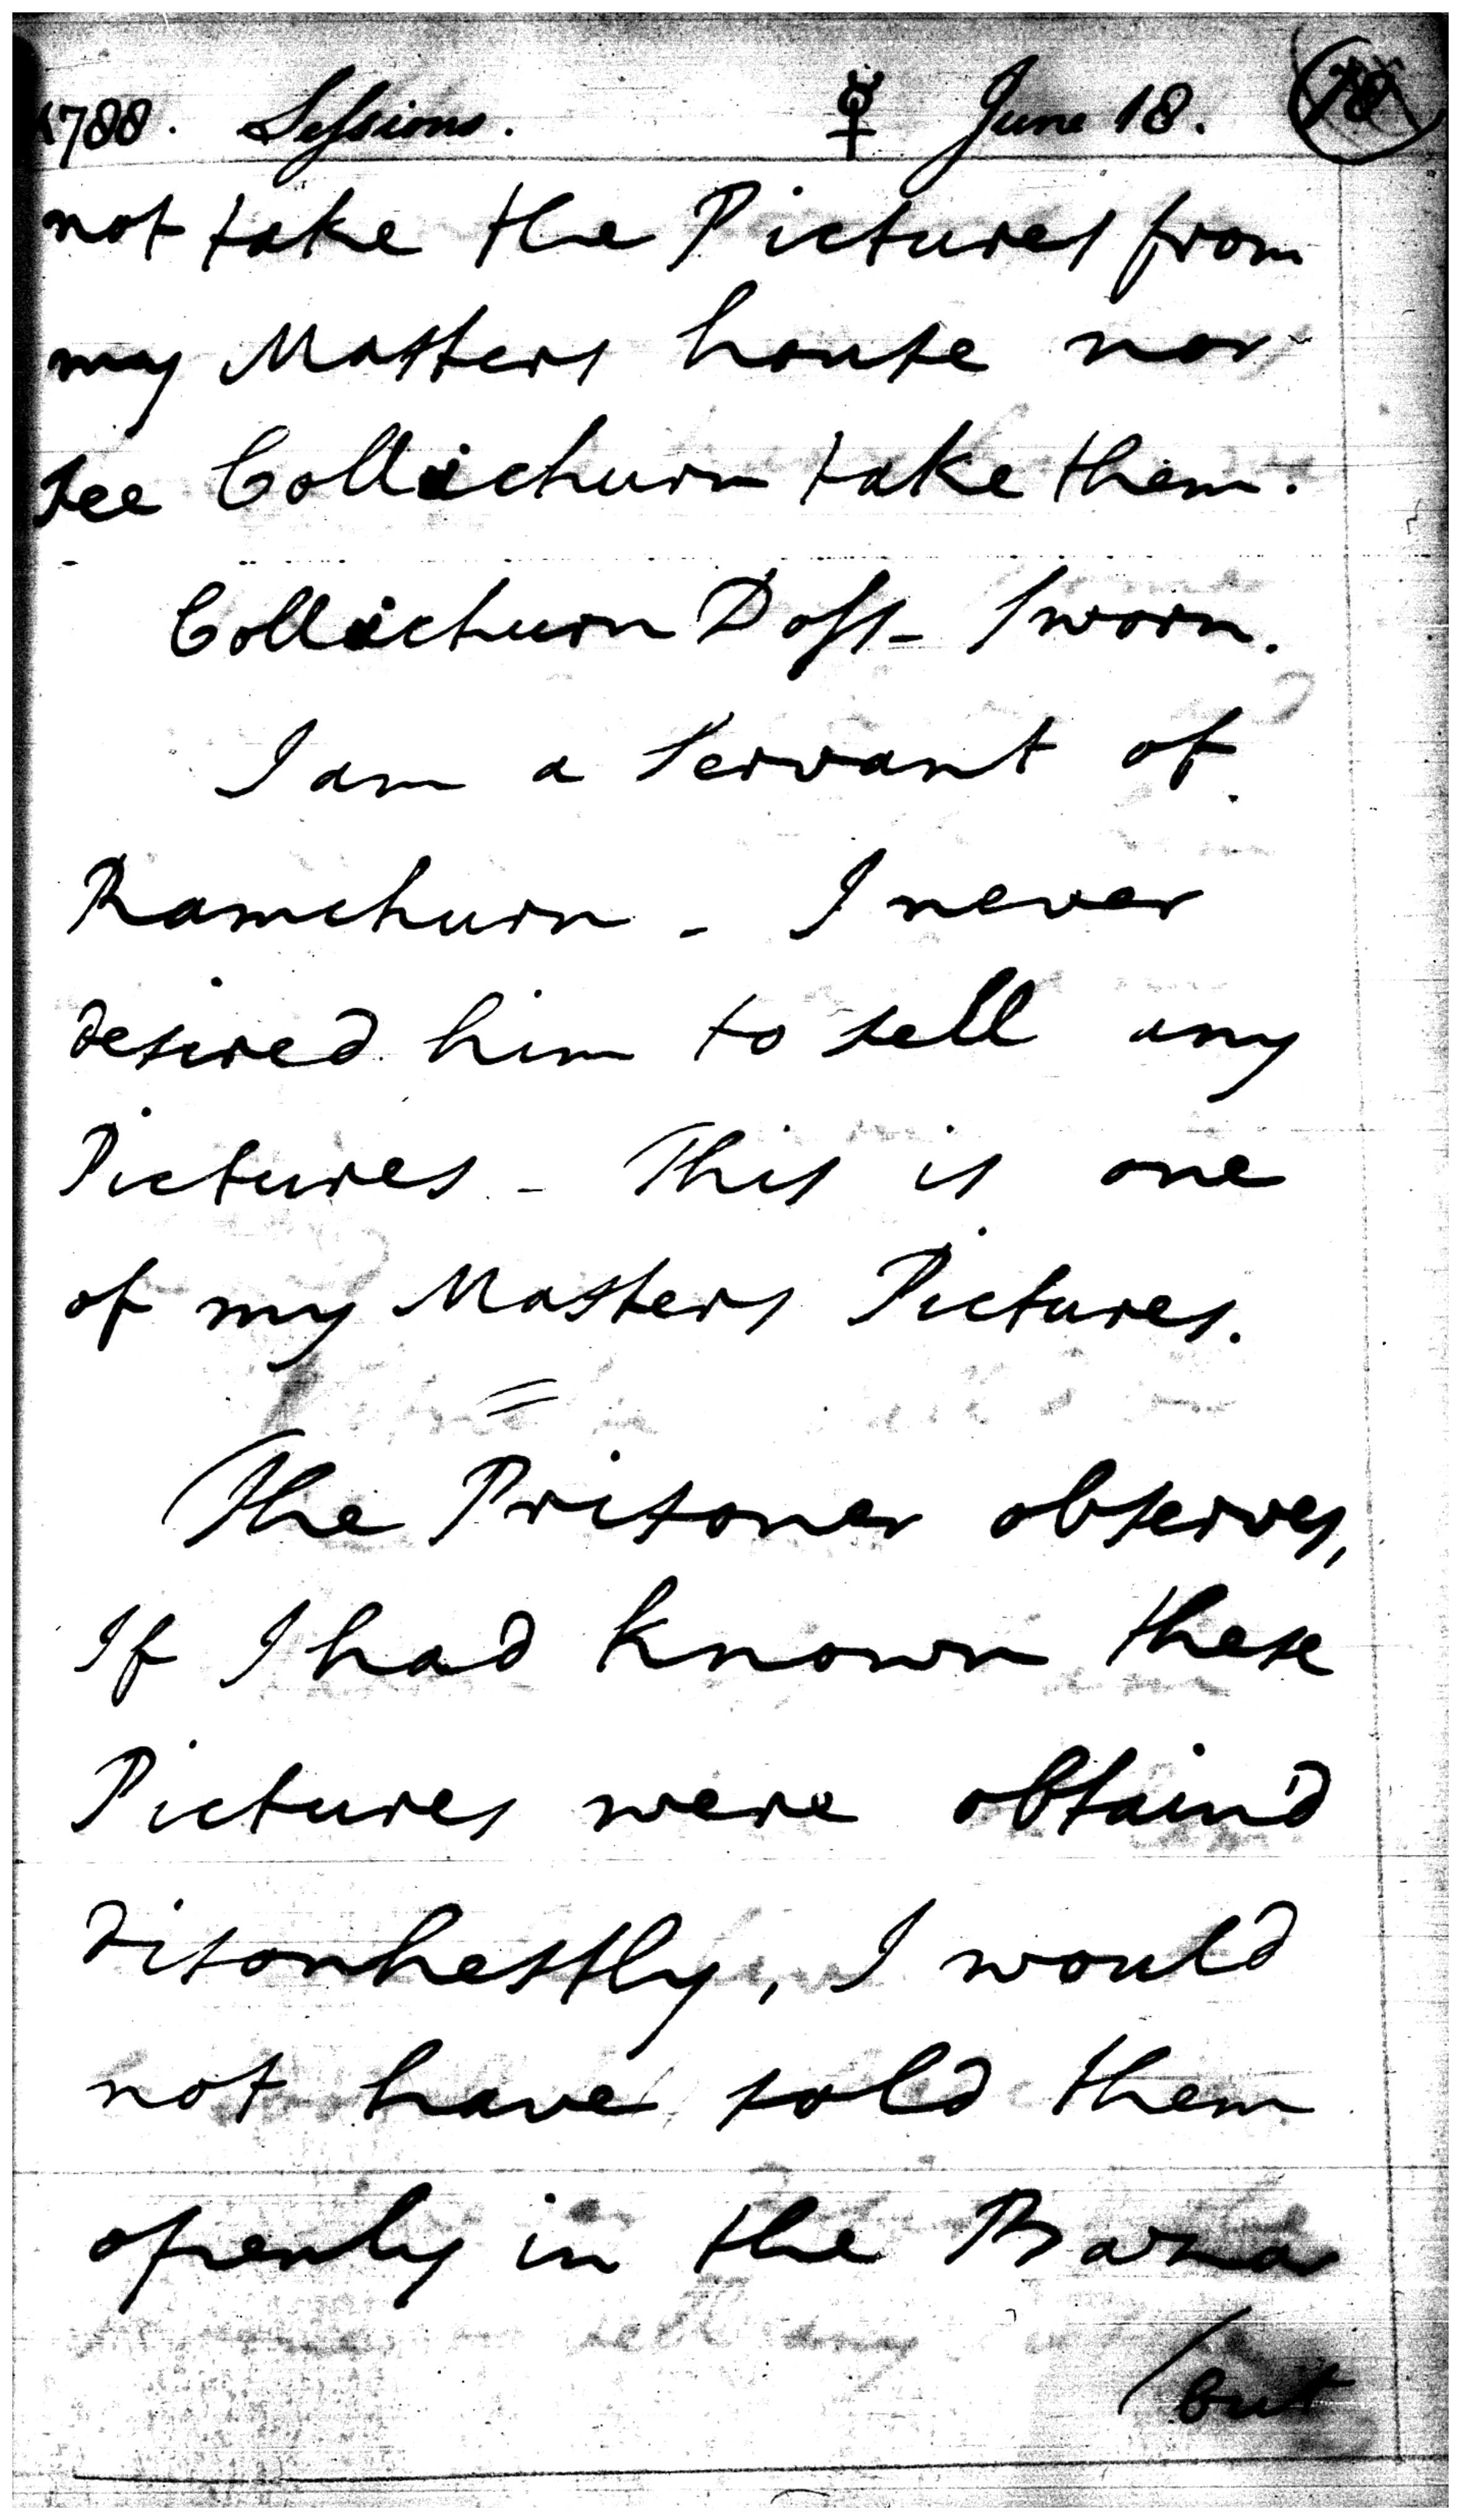 1788. Sessions. ☿ June 18. 78
not take the Pictures from
my Masters house nor
see Collichurn take them.
Collichurn Doss - Sworn.
I am a Servant of
Ramchurn - I never
desired him to sell any
Pictures - This is one
of my Masters Pictures.
=
The Prisoner observes,
If I had known these
Pictures were obtain'd
disonhestly, I would
not have sold them
openly in the Bazar
/but